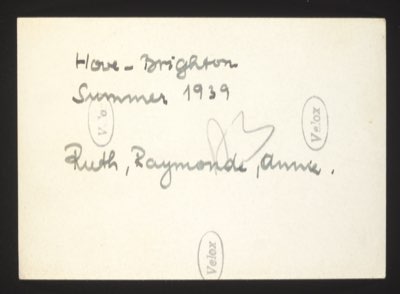 Hove - Brighton
Summer 1939
Velox
Velox
Ruth, Raymonde, Anne.
Velox